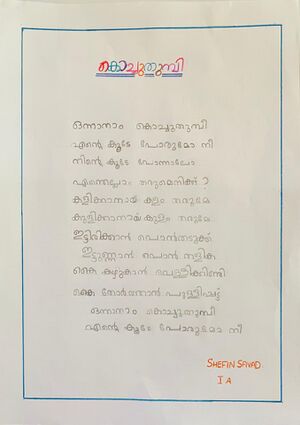 കൊച്ചുതുമ്പി
ഒന്നാനാം കൊച്ചുതുമ്പീ
എന്റെ കൂടെ പോരുമോ നീ
നിന്റെ കൂടെ പോന്നാലോ
എന്തെല്ലാം തരുമെനിക്ക് ?
കളിക്കാനായ് കളം തരുമേ
കുളിക്കാനായ് കുളം തരുമേ
ഇട്ടിരിക്കാൻ പൊൻതടുക്ക്
ഇട്ടുണ്ണാൻ പൊൻ തളിക
കൈ കഴുകാൻ വെള്ളിക്കിണ്ടി
കൈ തോർത്താൻ പുള്ളിപ്പട്ട്
ഒന്നാനാം കൊച്ചുതുമ്പീ
എന്റെ കൂടെ പോരുമോ നീ
SHEFIN SAYAD
I A